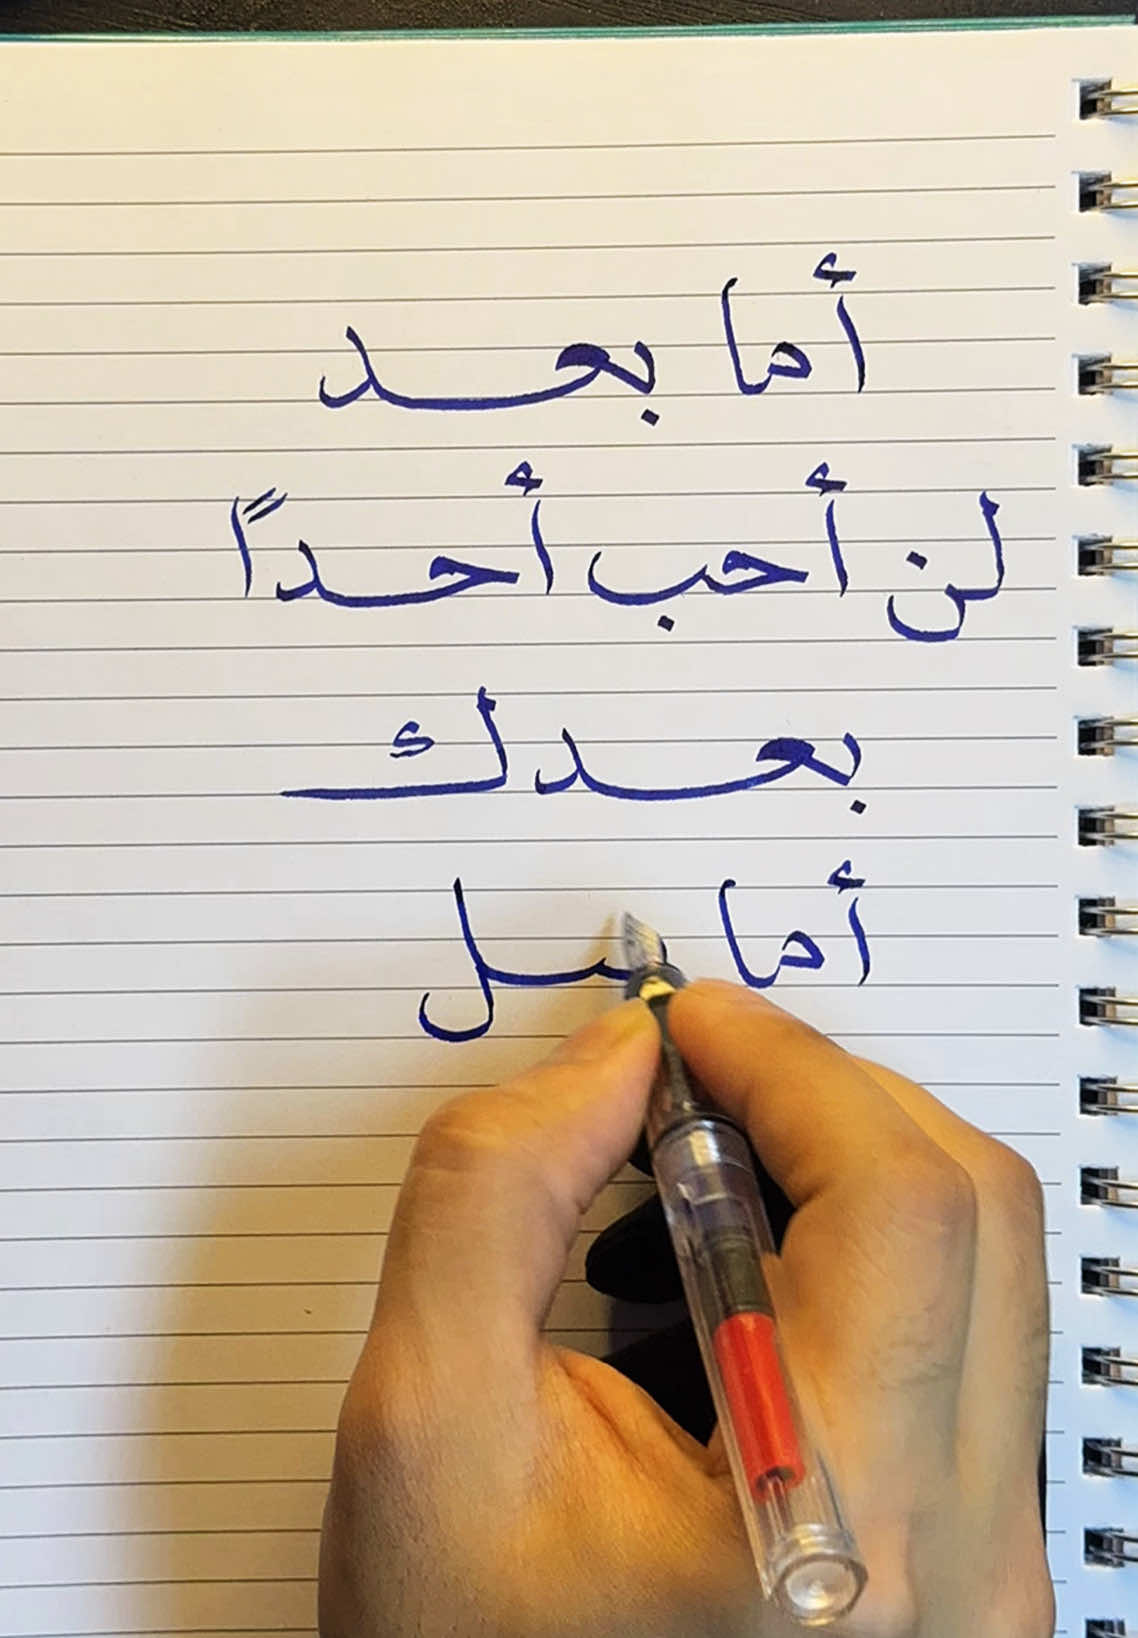 أما بعد
لن أحب أحداً
بعدك
أما